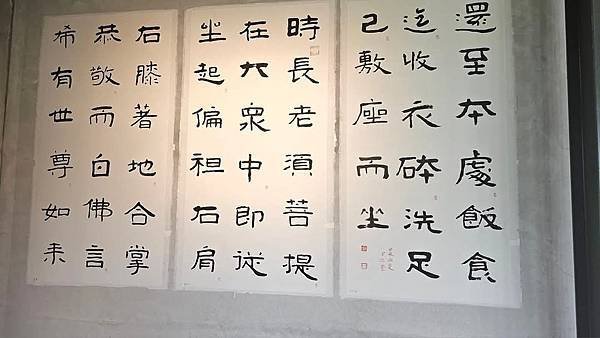 還至夲處飯食
迄收衣砵洗足
已敷座而坐
時長老湏菩提
在大衆中即従
坐起偏袒右肩
右膝著地合掌
恭敬而白佛言
希有世尊如来